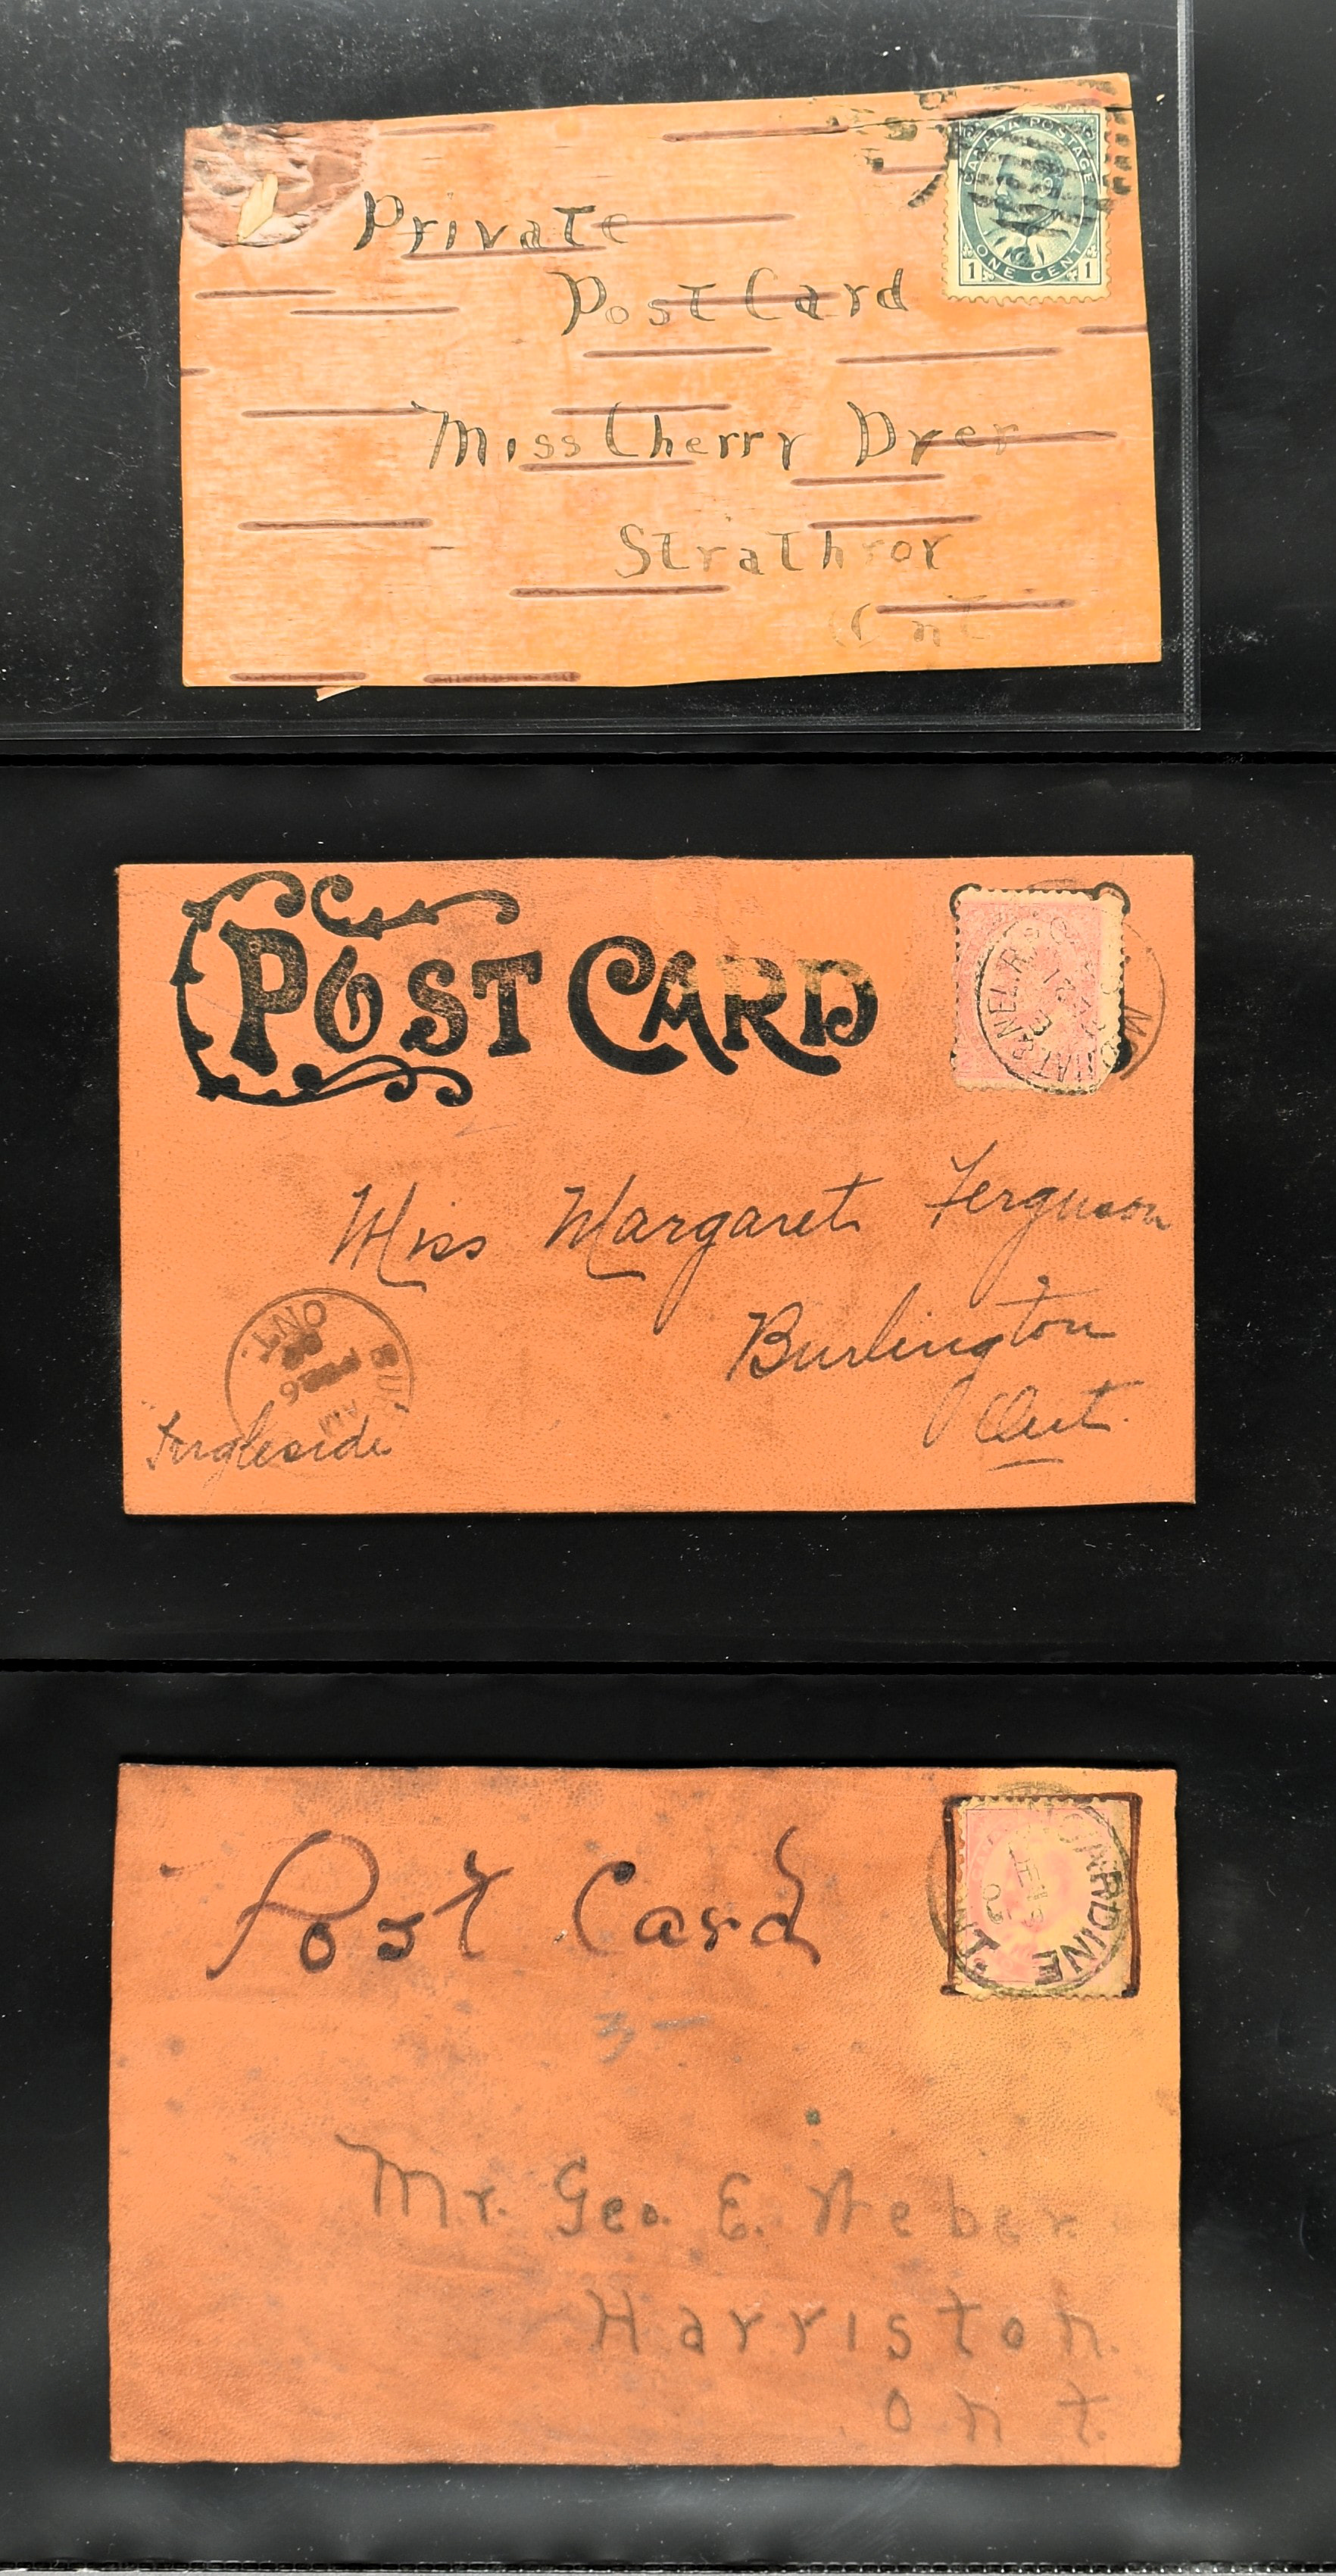 Private
Post Card
CANADA POSTAGE
ONE CENT
1 1
Miss Cherry Dyer
Strathroy
Ont
POST CARD
& NEL. R.
Miss Margaret Ferguson
Burlington
Ont.
ONT
BUR
AM
Ingleside
Post Card
CARDINE
3 —
Mr. Geo. E. Weber
Harriston.
Ont.